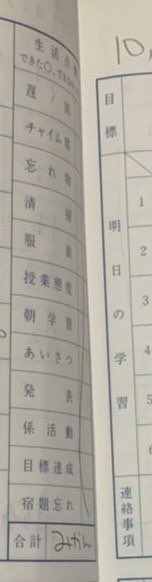 生活点検
できた○、できな
遅刻
チャイム席
忘れ物
清掃
服装
授業態度
朝学習
あいさつ
発表
係活動
目標達成
宿題忘れ
合計 みかん
10
目標
明日の学習
1
2
3
4
5
6
連絡事項